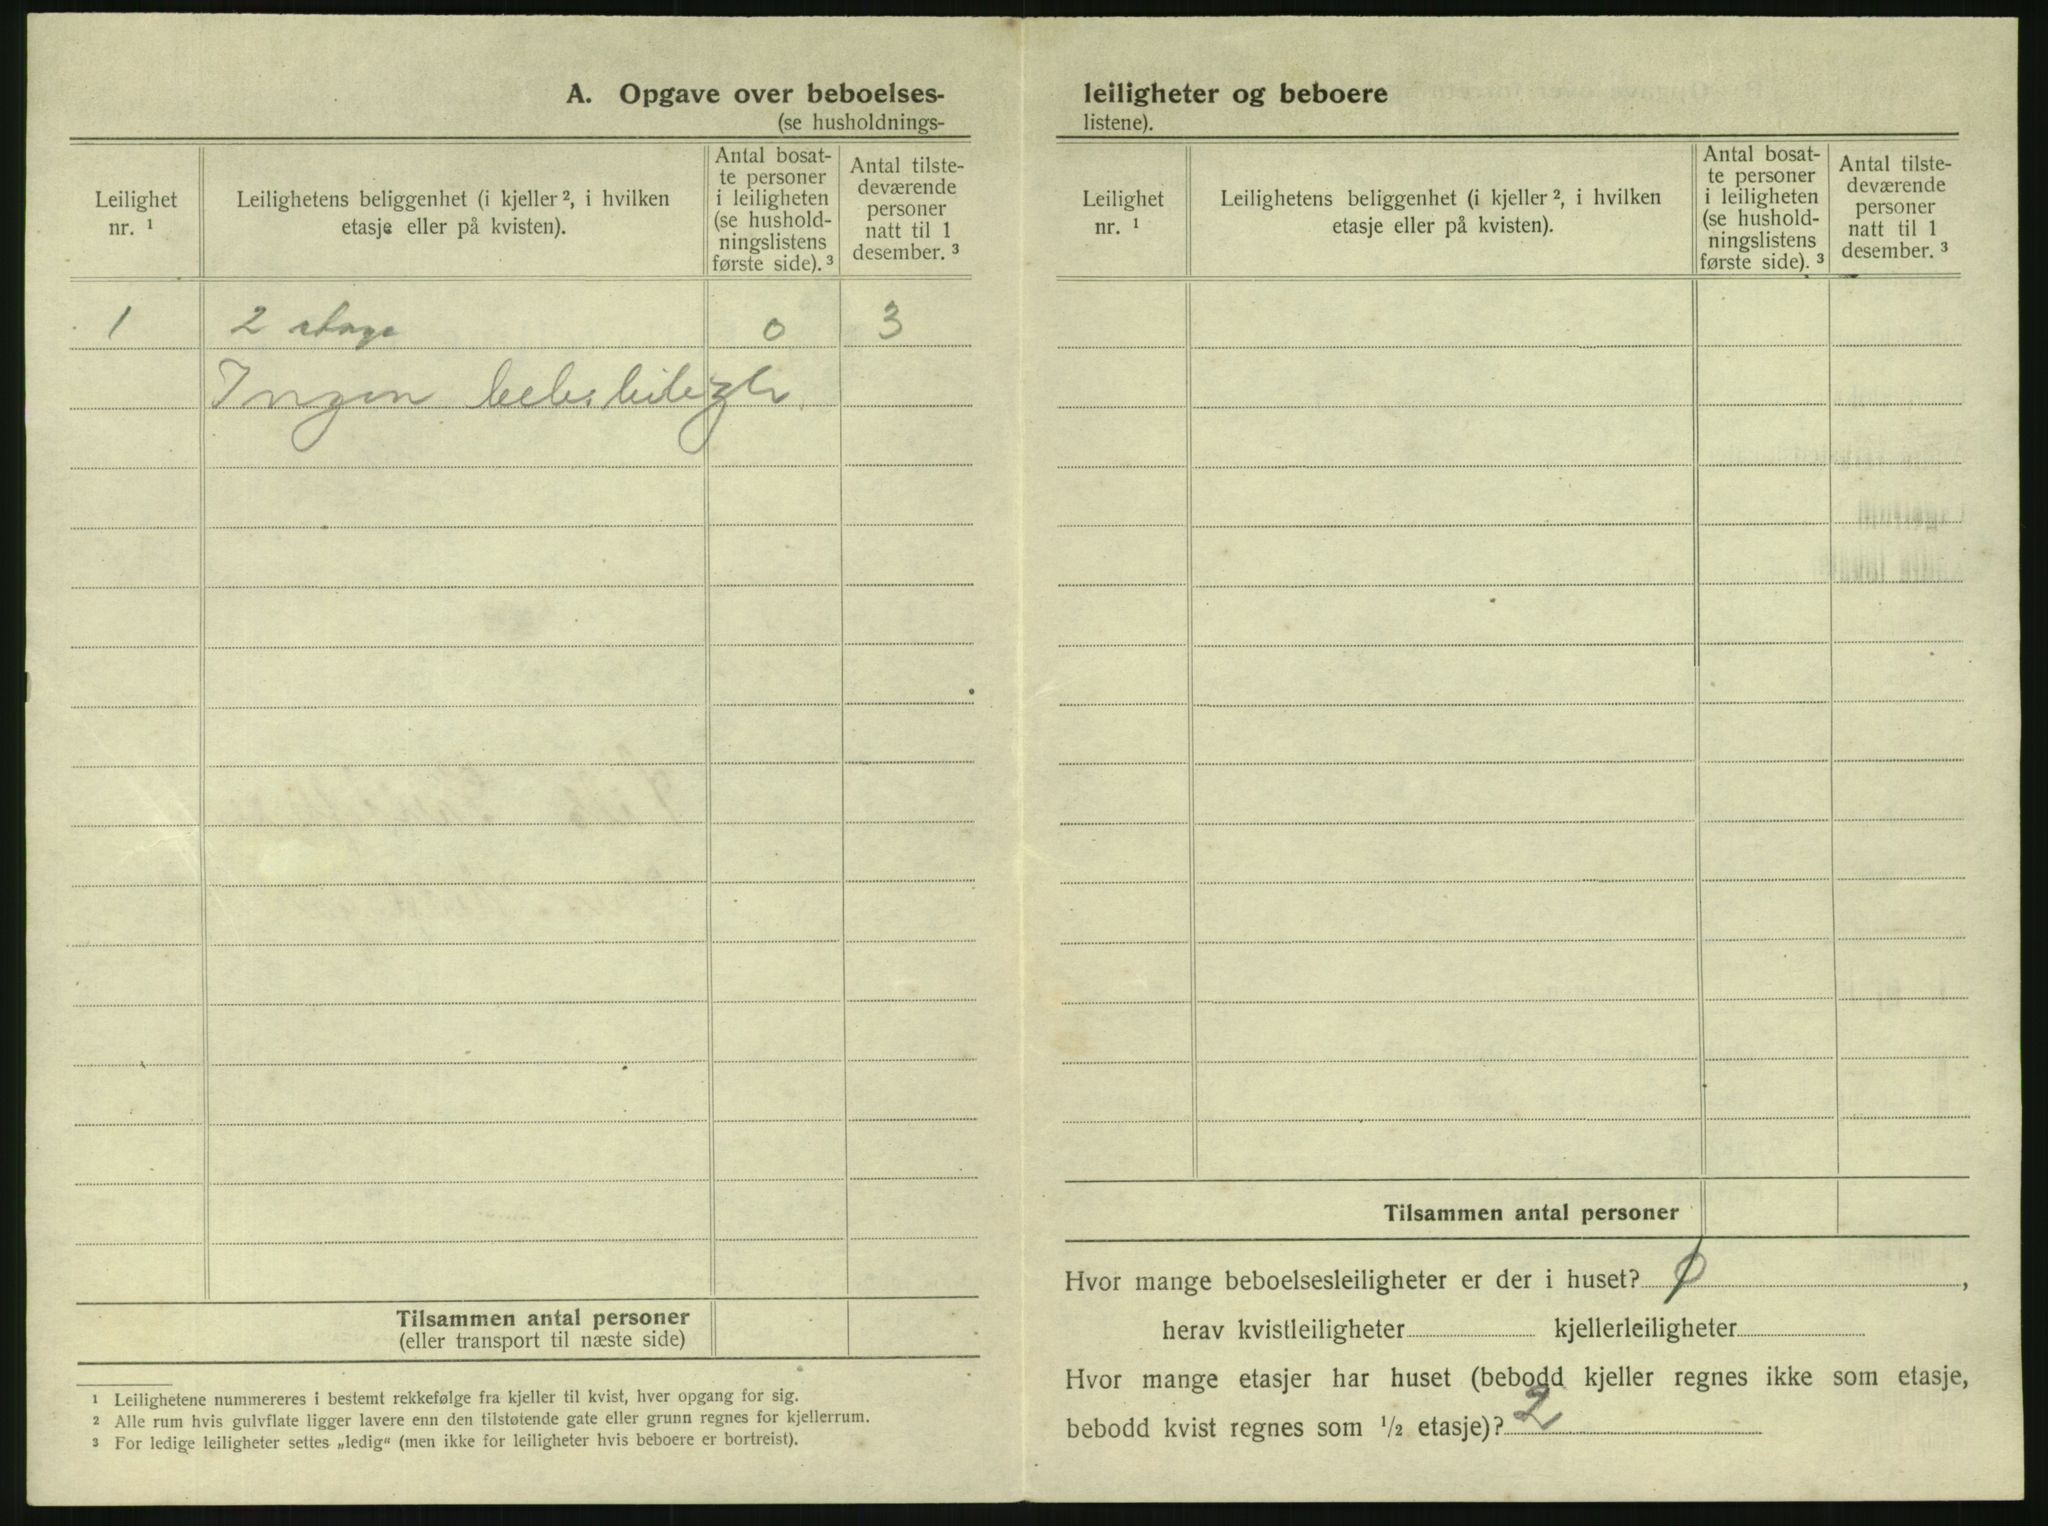 A. Opgave over beboelses-
(se husholdnings-
Leilighet nr. 1
Leilighetens beliggenhet (i kjeller ², i hvilken
etasje eller på kvisten).
Antal bosat-
te personer
i leiligheten
(se hushold-
ningslistens
første side). ³
Antal tilste-
deværende
personer
natt til 1
desember. ³
1 2 etage 0 3
Ingen
Tilsammen antal personer
(eller transport til næste side)
¹ Leilighetene nummereres i bestemt rekkefølge fra kjeller til kvist, hver opgang for sig.
² Alle rum hvis gulvflate ligger lavere enn den tilstøtende gate eller grunn regnes for kjellerrum.
³ For ledige leiligheter settes „ledig“ (men ikke for leiligheter hvis beboere er bortreist).
leiligheter og beboere
listene).
Leilighet
nr. ¹
Leilighetens beliggenhet (i kjeller ², i hvilken
etasje eller på kvisten).
Antal bosat-
te personer
i leiligheten
(se hushold-
ningslistens
første side). ³
Antal tilste-
deværende
personer
natt til 1
desember. ³
Tilsammen antal personer
Hvor mange beboelsesleiligheter er der i huset? 0,
herav kvistleiligheter kjellerleiligheter
Hvor mange etasjer har huset (bebodd kjeller regnes ikke som etasje,
bebodd kvist regnes som ½ etasje)? 2